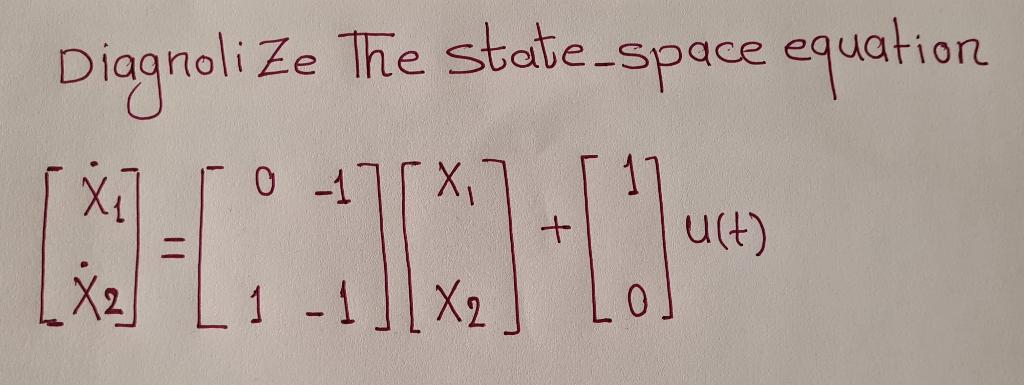 Diagnolize The state-space equation
[ẋ1 ẋ2] = [0 -1 1 -1] [x1 x2] + [1 0] u(t)